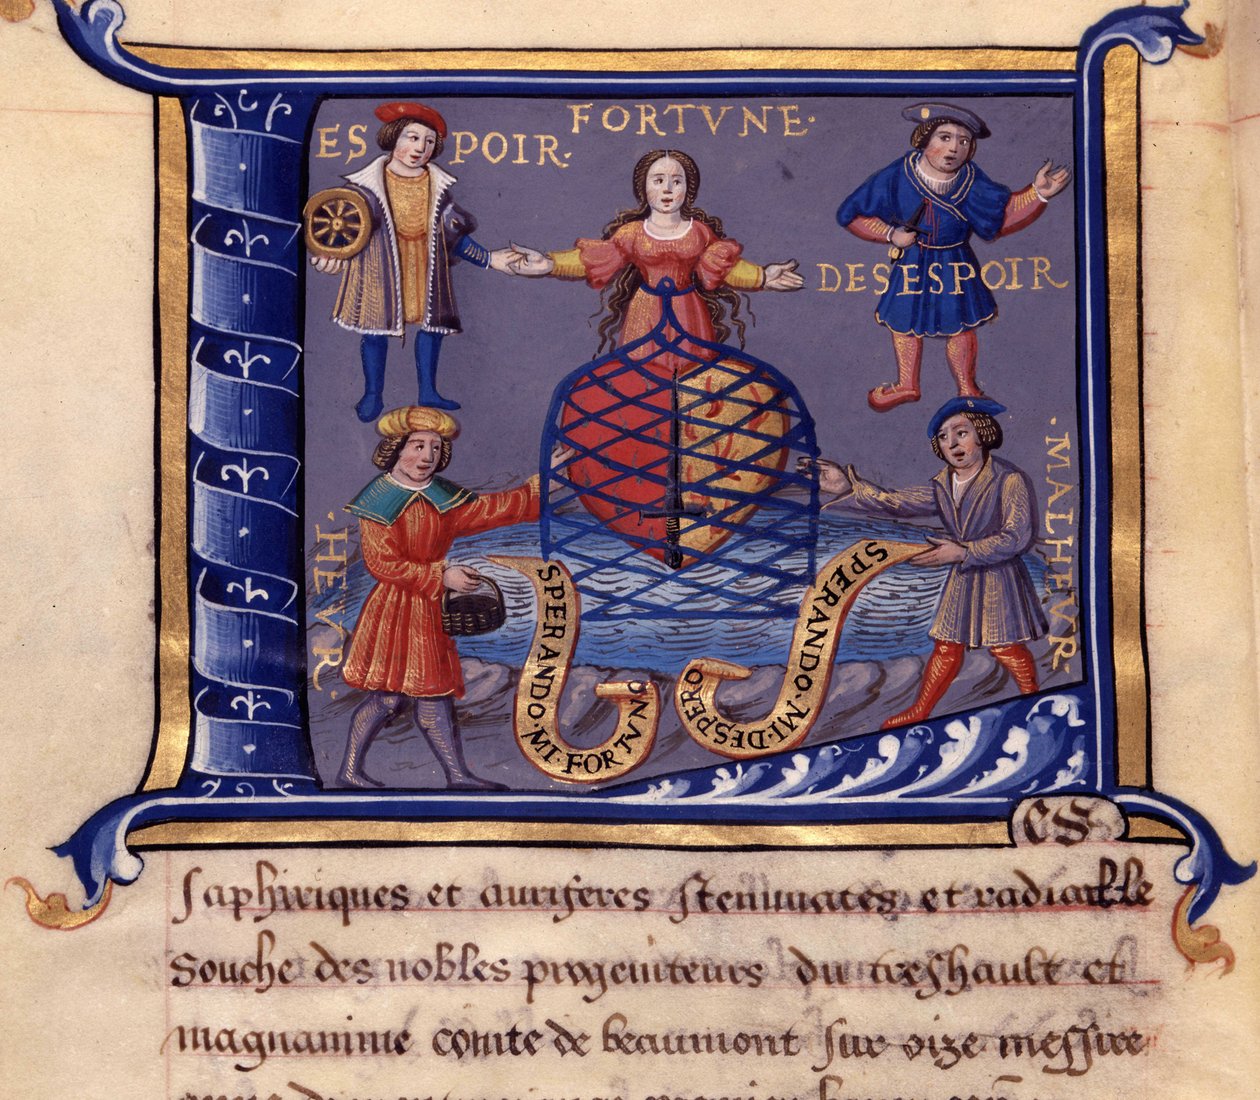 ES POIR.
FORTVNE.
DESESPOIR
.HEVR.
.MALHEVR.
SPERANDO. MI. FORTVNO
SPERANDO. MI. DESPERO
ES
saphiriques et auriferes stemmates et radicalle
Souche des nobles progeniteurs du treshault et
magnanime comte de beaumont sur oize messire